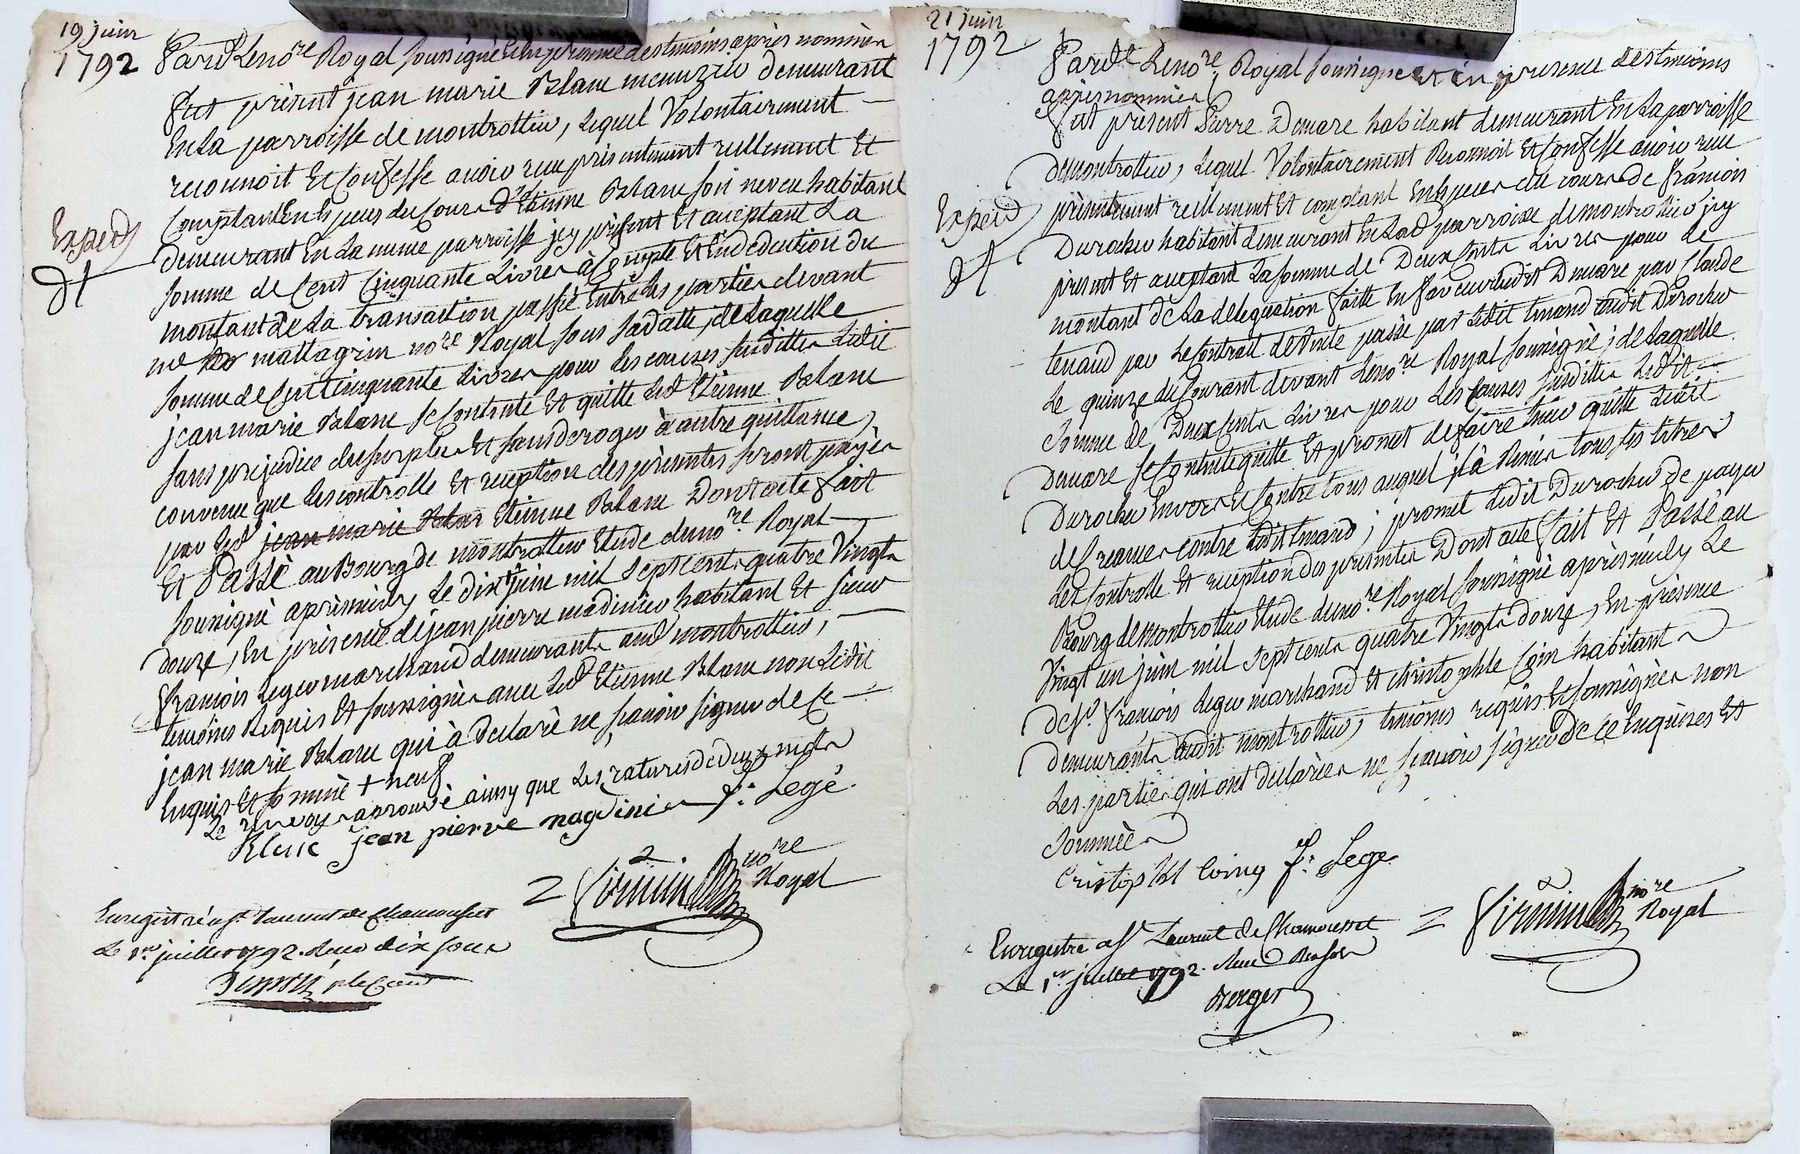 19 juin
1792
Pardt Le nore Royal soussigné et en presence des temoins après nommés
fut présent jean marie Blanc menuzier demeurant
En La parroisse de montrottier, lequel Volontairement
reconnoit Et Confesse avoir reçu présentement réellement Et
Comptant En Espèces du Cours d'Etienne Blanc son neveu habitant
Demeurant En La meme parroisse jcy présent Et acceptant La
somme de Cent Cinquante Livres à Compte Et En deduction du
montant de La transaction passée Entre les parties devant
me mattagrin nore Royal sous sa datte, de Laquelle
somme de Cent Cinquante Livres pour les causes susdittes Ledit
jean marie Blanc se Contente Et quitte Led Etienne Blanc
sans préjudice du surplus Et sans deroger à autre quittance,
convenu que Les controlle Et reception des présentes seront payés
par Led jean marie Blanc Etienne Blanc Dont acte fait
Et Passé au Bourg de montrottier Etude du nore Royal
soussigné après midy Le dix + juin mil sept cents quatre Vingts
douze, En présence de jean pierre madinier habitant Et sieur
François Leger marchand demeurants aud montrottier,
temoins Requis Et soussignés avec Led Etienne Blanc non Ledit
jean marie Blanc qui à Declaré ne sçavoir signer de Ce
Enquis Et sommé + neuf
Le renvoy aprouvé ainsy que Les ratures de deux mots
Blanc jean pierre magdinier f. Legé
nore
Royal
Enregistré a St Laurent de Chamousset
Le 1er juillet 1792. Reçu dix sous
Exped
dt
21 juin
1792
Pardt Le nore Royal soussigné Et en presence des temoins
après nommés
fut présent Pierre Demare habitant demeurant En La parroisse
de montrottier, Lequel Volontairement Reconnoit Et Confesse avoir reçu
présentement réellement Et comptant En Especes du cours de françois
Durocher habitant demeurant En Lad parroisse de montrottier jcy
présent Et acceptant La somme de Deux Cents Livres pour le
montant de La délégation faitte En faveur dudit Demare par Claude
tenaud par Le Contrat de Vente passé par Ledit tenaud audit Durocher
Le quinze du Courant devant Le nore Royal soussigné; de Laquelle
somme de Deux Cents Livres pour Les Causes susdittes Ledit
Demare se Contente quitte Et promet de faire tenir quitte Ledit
Durocher Envers Et Contre tous auquel jl à Remis tous ses titres
de Creances contre Ledit tenaud; promet Ledit Durocher de payer
Les Controlle Et reception des présentes Dont acte fait Et Passé au
Bourg de montrottier Etude du nore Royal soussigné après midy Le
Vingt un juin mil sept cents quatre Vingts douze, En présence
de sr. François Leger marchand Et christophle Coin habitant
demeurants audit montrottier, temoins requis Et soussignés non
Les parties qui ont déclarées ne sçavoir signer De Ce Enquises Et
sommées
Cristophl Coing f. Lege
nore
Royal
Enregistré a St Laurent de Chamousset
Le 1er juillet 1792.
Berger
Exped
dt